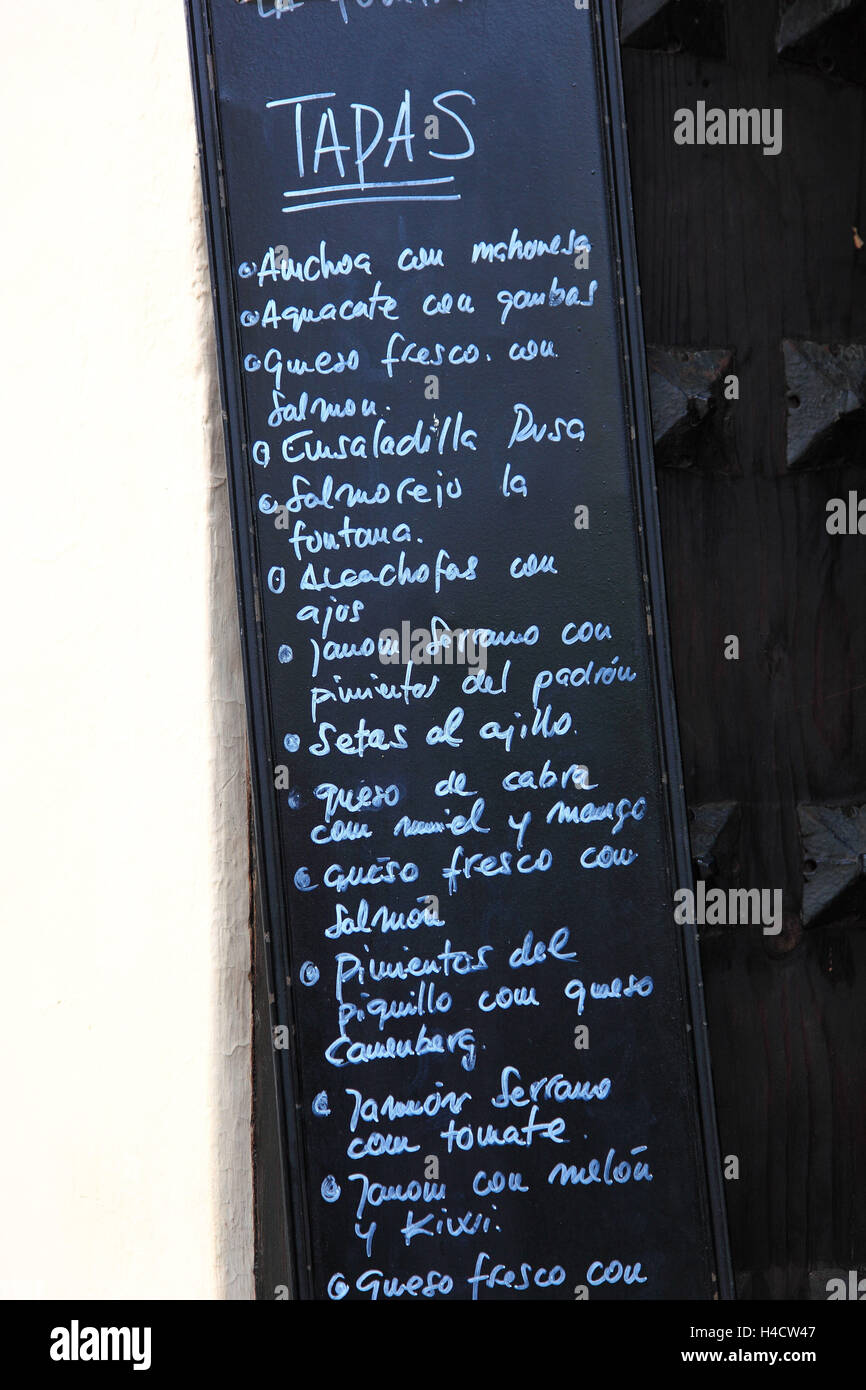 TAPAS
Anchoa con mahonesa
Aguacate con gambas
Queso fresco. con
Salmon.
Ensaladilla Rusa
Salmorejo la
fontana.
Alcachofas con
ajos
Jamom Serrano con
pimientos del padrón
Setas al ajillo.
queso de cabra
com miel y mango
queso fresco con
Salmón
Pimientos del
piquillo com queso
Camenberg.
Jamón Serrano
com tomate.
Jamom con melón
y Kiwi.
Queso fresco con
alamy
Image ID: H4CW47
www.alamy.com